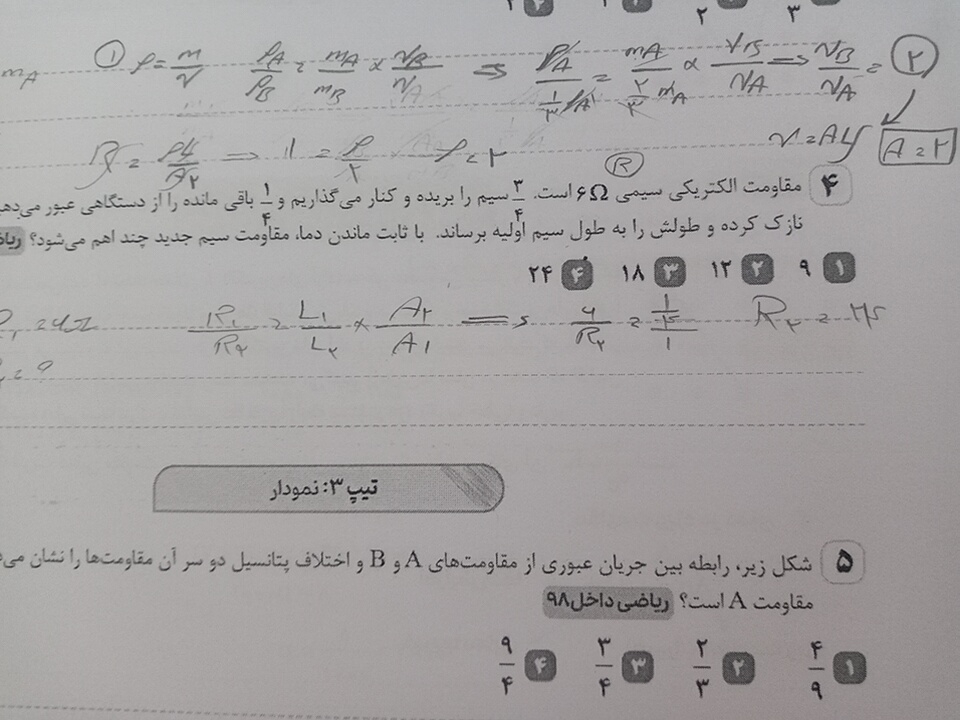 ۲ ۳
m_A ① ρ = m/V ρ_A/ρ_B = m_A/m_B × V_B/V_A ⇒ ρ_A/(۱/۳ ρ_A) = m_A/(۲/۳ m_A) × V_B/V_A ⇒ V_B/V_A = ②
V = AL A = ۲
۴ مقاومت الکتریکی سیمی ۶Ω است. ۳/۴ سیم را بریده و کنار می‌گذاریم و ۱/۴ باقی مانده را از دستگاهی عبور می‌دهی
نازک کرده و طولش را به طول سیم اولیه برساند. با ثابت ماندن دما، مقاومت سیم جدید چند اهم می‌شود؟ ریا
۱ ۹ ۲ ۱۲ ۳ ۱۸ ۴ ۲۴
R₁/R₂ = L₁/L₂ × A₂/A₁ ⇒ ۶/R₂ = ۱/۴/۱ R₂ = ۲۴
تیپ ۳: نمودار
۵ شکل زیر، رابطه بین جریان عبوری از مقاومت‌های A و B و اختلاف پتانسیل دو سر آن مقاومت‌ها را نشان می‌د
مقاومت A است؟ ریاضی داخل ۹۸
۱ ۴/۹ ۲ ۲/۳ ۳ ۳/۴ ۴ ۹/۴